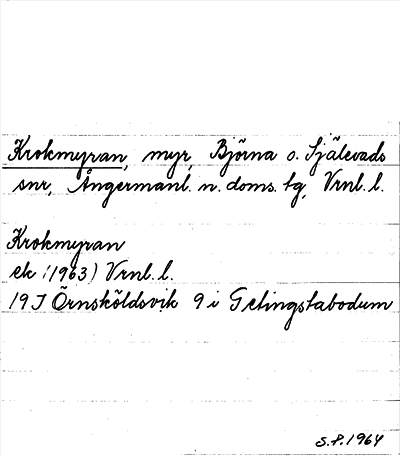 Krokmyran, myr, Björna o. Själevads
snr, Ångermanl. n. doms. tg, Vrnl. l.
Krokmyran
ek (1963) Vrnl. l.
19J Örnsköldsvik 9 i Getingstabodum
S.P. 1964